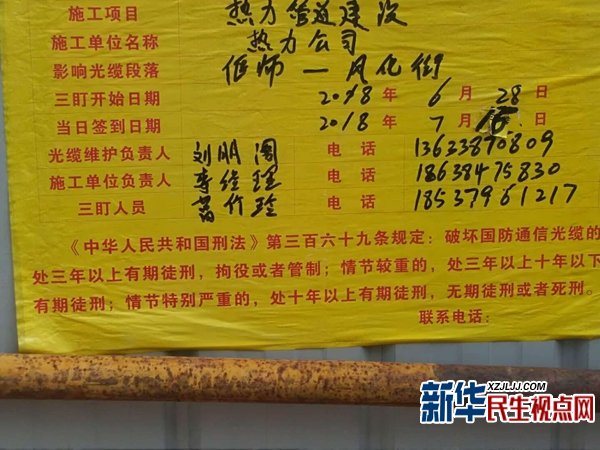 施工项目 热力管道建设
施工单位名称 热力公司
影响光缆段落 偃师一风化街
三盯开始日期 2018年6月28日
当日签到日期 2018年7月
光缆维护负责人 刘朋阁 电话 13633870809
施工单位负责人 李经理 电话 18638475830
三盯人员 电话 18537961217
《中华人民共和国刑法》第三百六十九条规定：破坏国防通信光缆的
处三年以上有期徒刑，拘役或者管制；情节较重的，处三年以上十年以下
有期徒刑；情节特别严重的，处十年以上有期徒刑，无期徒刑或者死刑。
联系电话：
XZJLJJ.COM
新华民生视点网